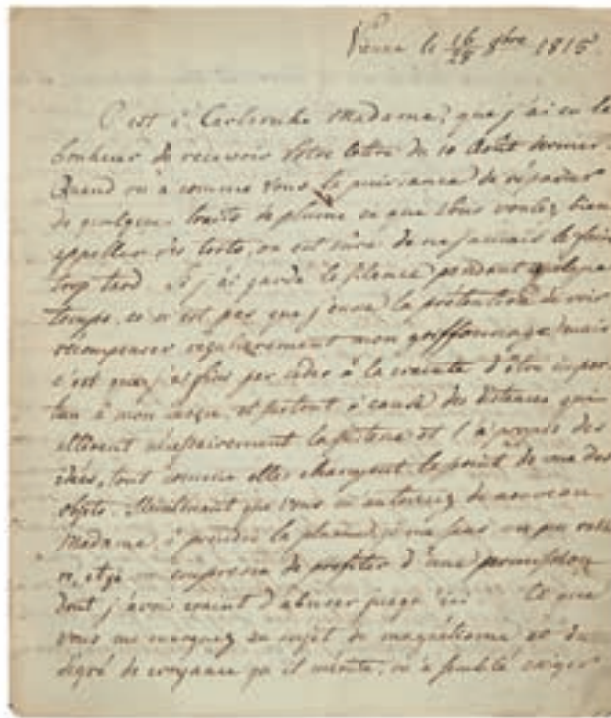 Vienne le 16/28 8bre 1815.
C'est à Carlsruhe Madame, que j'ai eu le
bonheur de recevoir votre lettre du 10 Août dernier.
Quand on a comme vous la puissance de réparer
de quelques traits de plume ce que vous voulez bien
appeller des torts, on est sûre de ne jamais le faire
trop tard. Si j'ai gardé le silence pendant quelque
temps, ce n'est pas que j'eusse la prétention de voir
récompenser régulièrement mon griffonnage, mais
c'est que j'ai fini par céder à la crainte d'être impor
tun à mon insçu, et surtout à cause des distances qui
altèrent nécessairement la justesse et l'à propos des
idées, tout comme elles changent le point de vue des
objets. Maintenant que vous m'autorisez de nouveau
Madame, à prendre la plume, je me sens un peu
et je m'empresse de profiter d'une permission
dont j'avois craint d'abuser jusqu'ici Ce que
vous me marquez au sujet du magnétisme et du
degré de croyance qu'il mérite, m'a semblé exiger